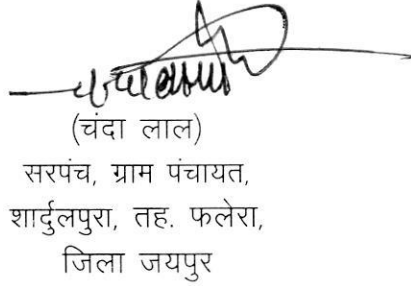 (चंदा लाल)
सरपंच, ग्राम पंचायत,
शार्दुलपुरा, तह. फलेरा,
जिला जयपुर